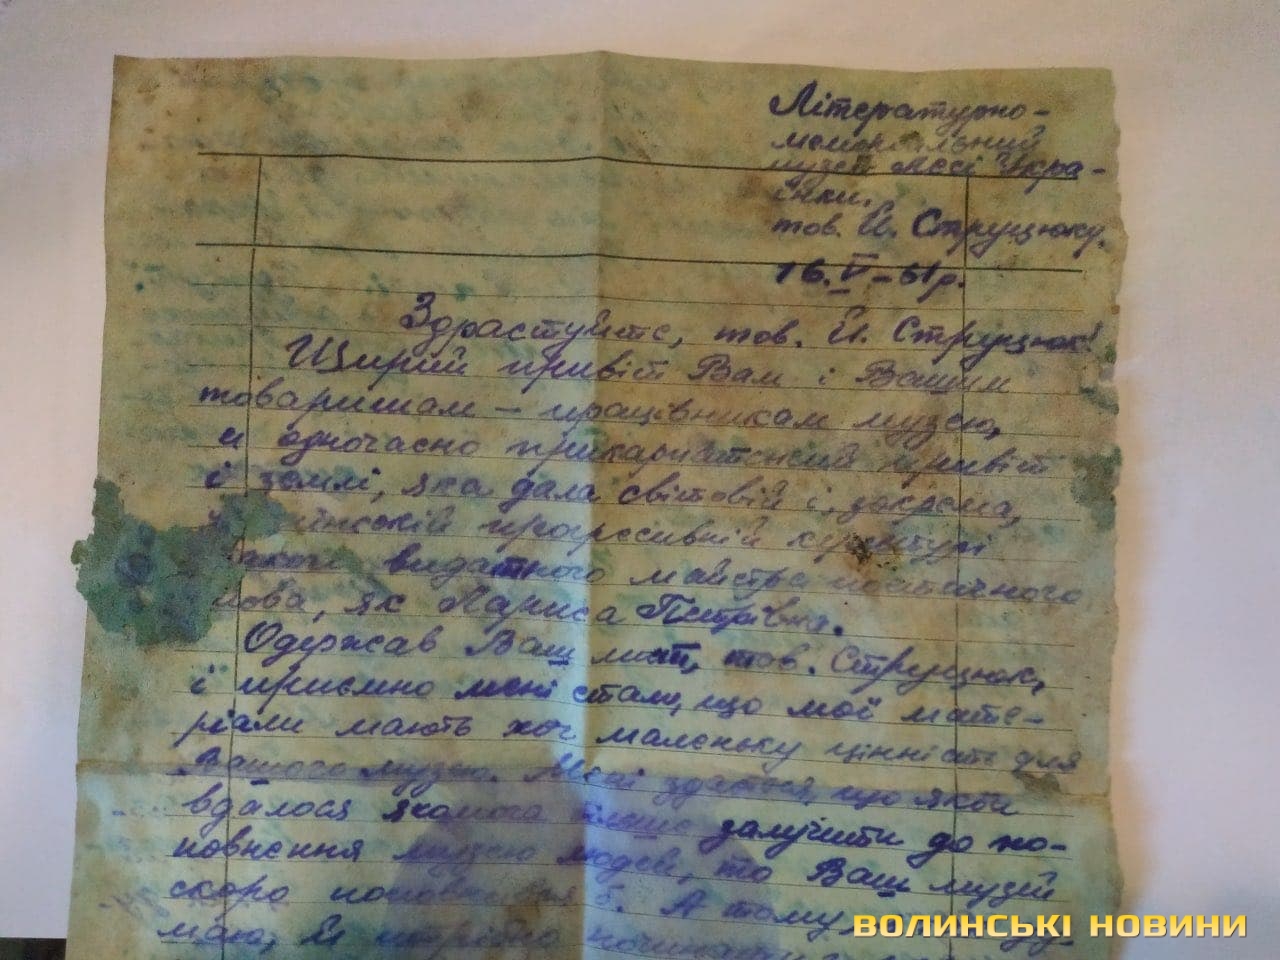 Літературно-
меморіальний
музей Лесі Украˊ-
їнки.
тов. Й. Струцюку.
16.V-61р.
Здрастуйте, тов. Й. Струцюк!
Щирий привіт Вам і Вашим
товаришам – працівникам музею,
а одночасно прикарпатський привіт
і землі, яка дала світовій і, зокрема,
прогресивній культурі
такого видатного майстра поетичного
слова, як Лариса Петрівна.
Одержав Ваш лист, тов. Струцюк,
і приємно мені стало, що мої мате-
ріали мають хоч маленьку цінність для
Вашого музею. Мені здається, що якби
вдалося якомога більше залучити до по-
повнення музею людей, то Ваш музей
скоро поповнився б. А тому,
маю, й потрібно починати
ВОЛИНСЬКІ НОВИНИ